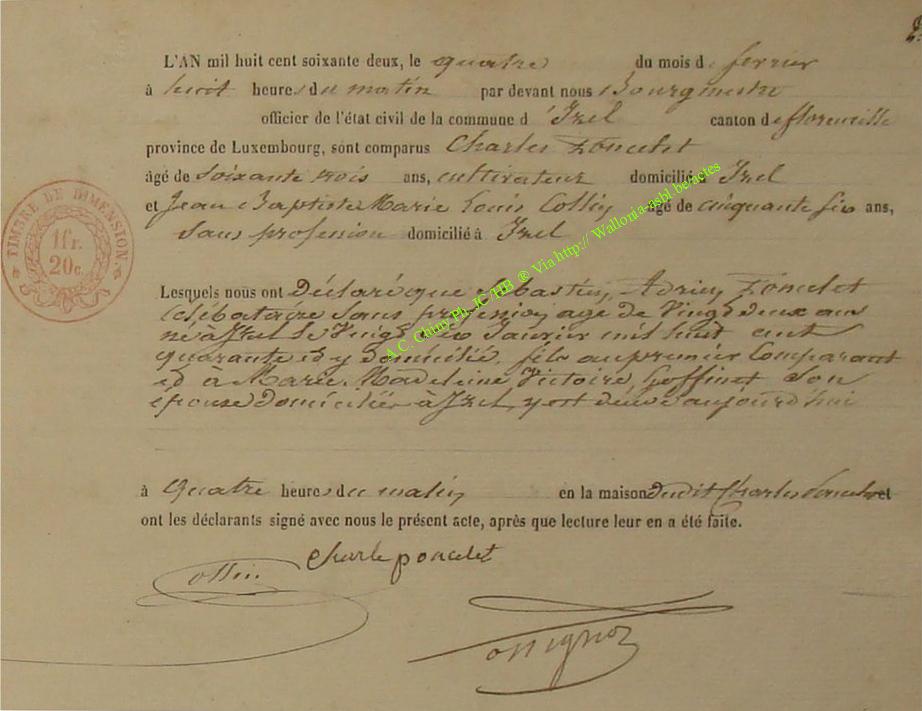 L'AN mil huit cent soixante deux, le quatre du mois de fevrier
à huit heures du matin par devant nous Bourgmestre
officier de l'état civil de la commune d'Izel canton de florenville
province de Luxembourg, sont comparus Charles Poncelet
âgé de soixante trois ans, cultivateur domicilié à Izel
et Jean Baptiste Marie Louis Collin âgé de cinquante six ans,
sans profession domicilié à Izel
TIMBRE DE DIMENSION
1 fr.
20 c.
Lesquels nous ont Déclaré que Sebastien, Adrien Poncelet
Célébataire sans profession agé de Vingt deux ans
né à Izel le Vingt Janvier mil huit cent
quarante et y domicilié, fils au premier Comparant
et à Marie Madeleine Victoire, Goffinet son
épouse Domiciliés à Izel, y est décédé aujourd'hui
à quatre heures du matin en la maison dudit Charles Poncelet et
ont les déclarants signé avec nous le présent acte, après que lecture leur en a été faite.
Charle poncelet
Collin
A.C. Chiny Ph. JC/HB ® Via http:// Wallonia-asbl.be/actes